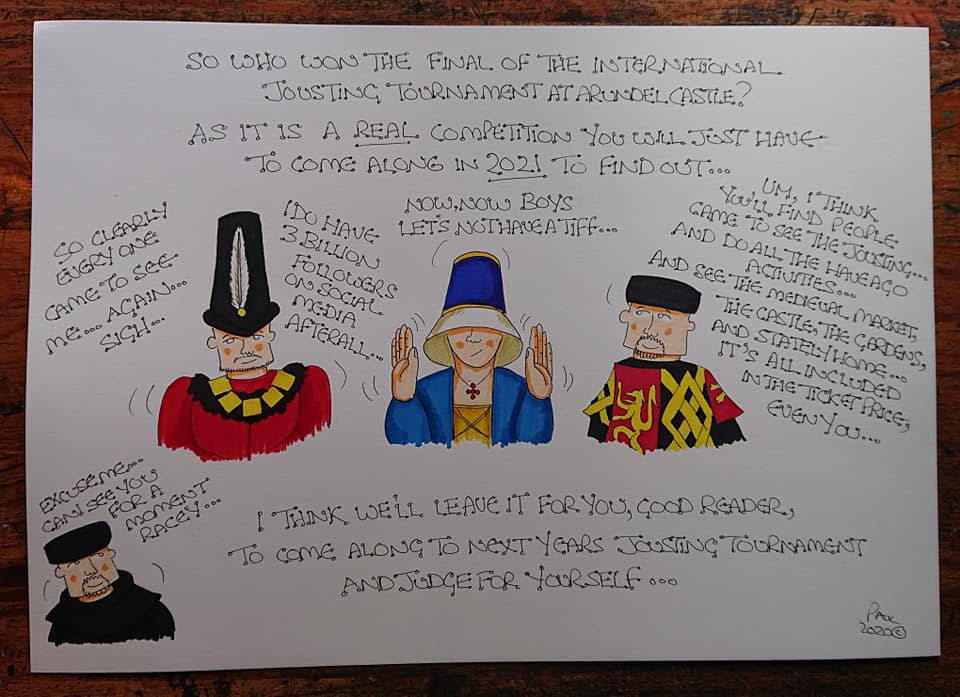 SO WHO WON THE FINAL OF THE INTERNATIONAL
JOUSTING TOURNAMENT AT ARUNDEL CASTLE?
AS IT IS A REAL COMPETITION YOU WILL JUST HAVE
TO COME ALONG IN 2021 TO FIND OUT...
SO CLEARLY
EVERY ONE
CAME TO SEE
ME... AGAIN...
SIGH...
I DO HAVE
3 BILLION
FOLLOWERS
ON SOCIAL
MEDIA
AFTERALL...
NOW, NOW BOYS
LET'S NOT HAVE A TIFF...
UM, I THINK
YOU'LL FIND PEOPLE
CAME TO SEE THE JOUSTING...
AND DO ALL THE HAVE A GO
ACTIVITIES...
AND SEE THE MEDIEVAL MARKET,
THE CASTLE, THE GARDENS,
AND STATELY HOME...
IT'S ALL INCLUDED
IN THE TICKET PRICE,
EVEN YOU...
EXCUSE ME...
CAN I SEE YOU
FOR A
MOMENT
RACEY...
I THINK WE'LL LEAVE IT FOR YOU, GOOD READER,
TO COME ALONG TO NEXT YEARS JOUSTING TOURNAMENT
AND JUDGE FOR YOURSELF...
PAUL
2020©